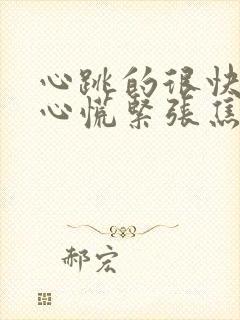 心跳的很快
心慌紧张焦
郝宏